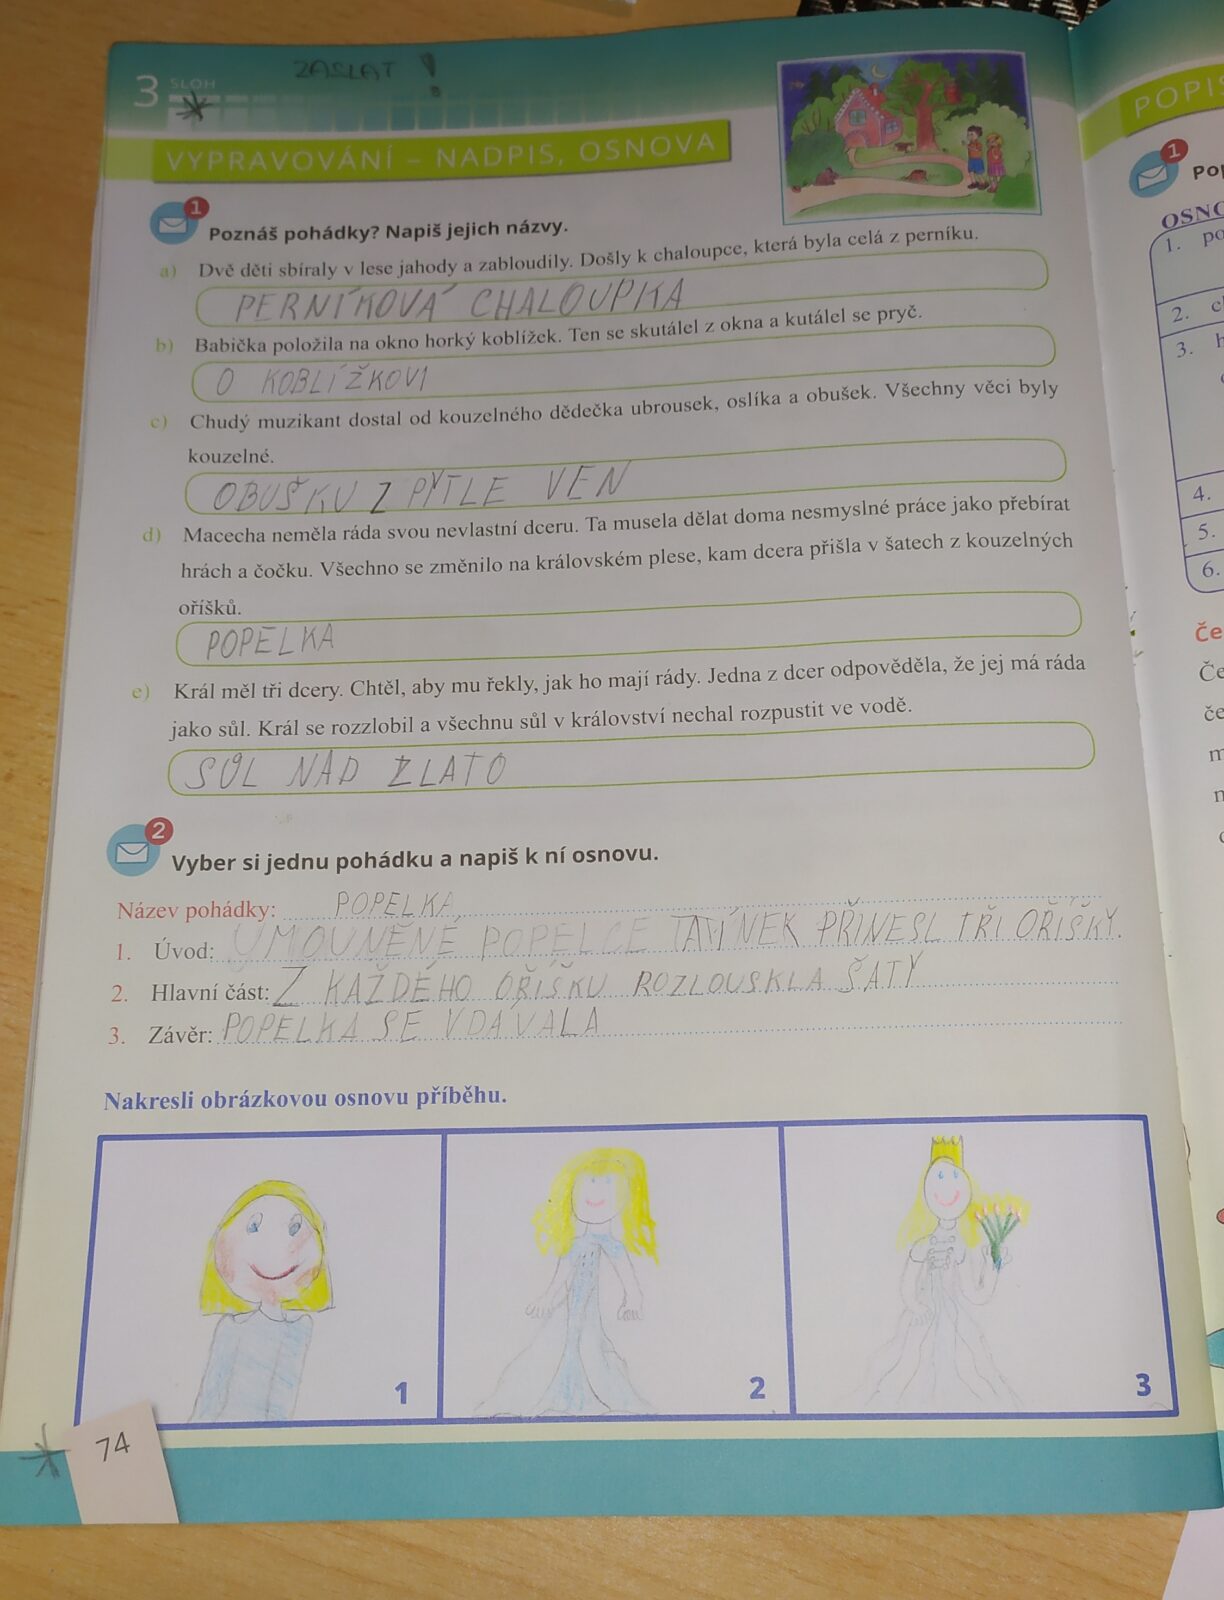 ZASLAT !
3 SLOH
VYPRAVOVÁNÍ – NADPIS, OSNOVA
1
Poznáš pohádky? Napiš jejich názvy.
a) Dvě děti sbíraly v lese jahody a zabloudily. Došly k chaloupce, která byla celá z perníku.
PERNÍKOVÁ CHALOUPKA
b) Babička položila na okno horký koblížek. Ten se skutálel z okna a kutálel se pryč.
O KOBLÍŽKOVI
c) Chudý muzikant dostal od kouzelného dědečka ubrousek, oslíka a obušek. Všechny věci byly
kouzelné.
OBUŠKU Z PYTLE VEN
d) Macecha neměla ráda svou nevlastní dceru. Ta musela dělat doma nesmyslné práce jako přebírat
hrách a čočku. Všechno se změnilo na královském plese, kam dcera přišla v šatech z kouzelných
oříšků.
POPELKA
e) Král měl tři dcery. Chtěl, aby mu řekly, jak ho mají rády. Jedna z dcer odpověděla, že jej má ráda
jako sůl. Král se rozzlobil a všechnu sůl v království nechal rozpustit ve vodě.
SŮL NAD ZLATO
2
Vyber si jednu pohádku a napiš k ní osnovu.
Název pohádky: POPELKA
1. Úvod: UMOUNĚNÉ POPELCE TATÍNEK PŘINESL TŘI OŘÍŠKY.
2. Hlavní část: Z KAŽDÉHO OŘÍŠKU ROZLOUSKLA ŠATY
3. Závěr: POPELKA SE VDÁVALA
Nakresli obrázkovou osnovu příběhu.
1
2
3
74
POPIS
1
OSNO
1. po
2.
3.
4.
5.
6.
Če
Če
če